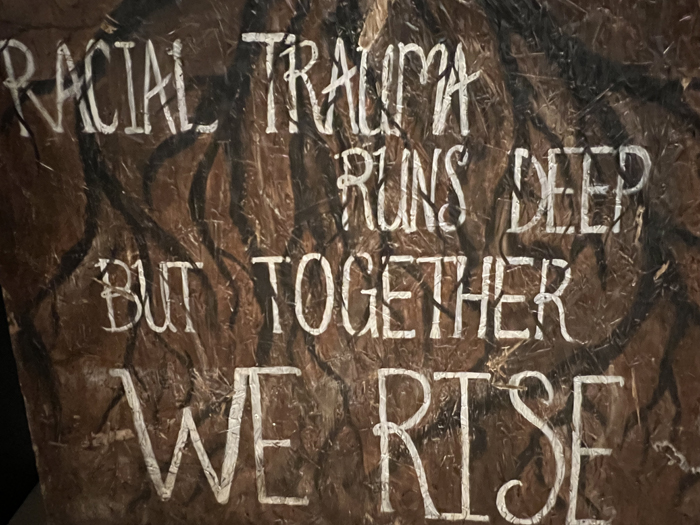 RACIAL TRAUMA
RUNS DEEP
BUT TOGETHER
WE RISE